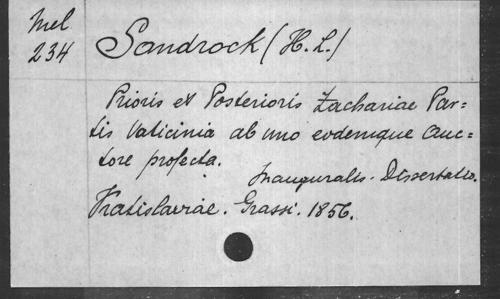 Mel
234
Sandrock (H. L.)
Prioris et Posterioris Zachariae Par=
tis Vaticinia ab uno eodemque auc=
tore profecta.
Inauguralis-Dissertatio.
Vratislaviae. Grassi. 1856.